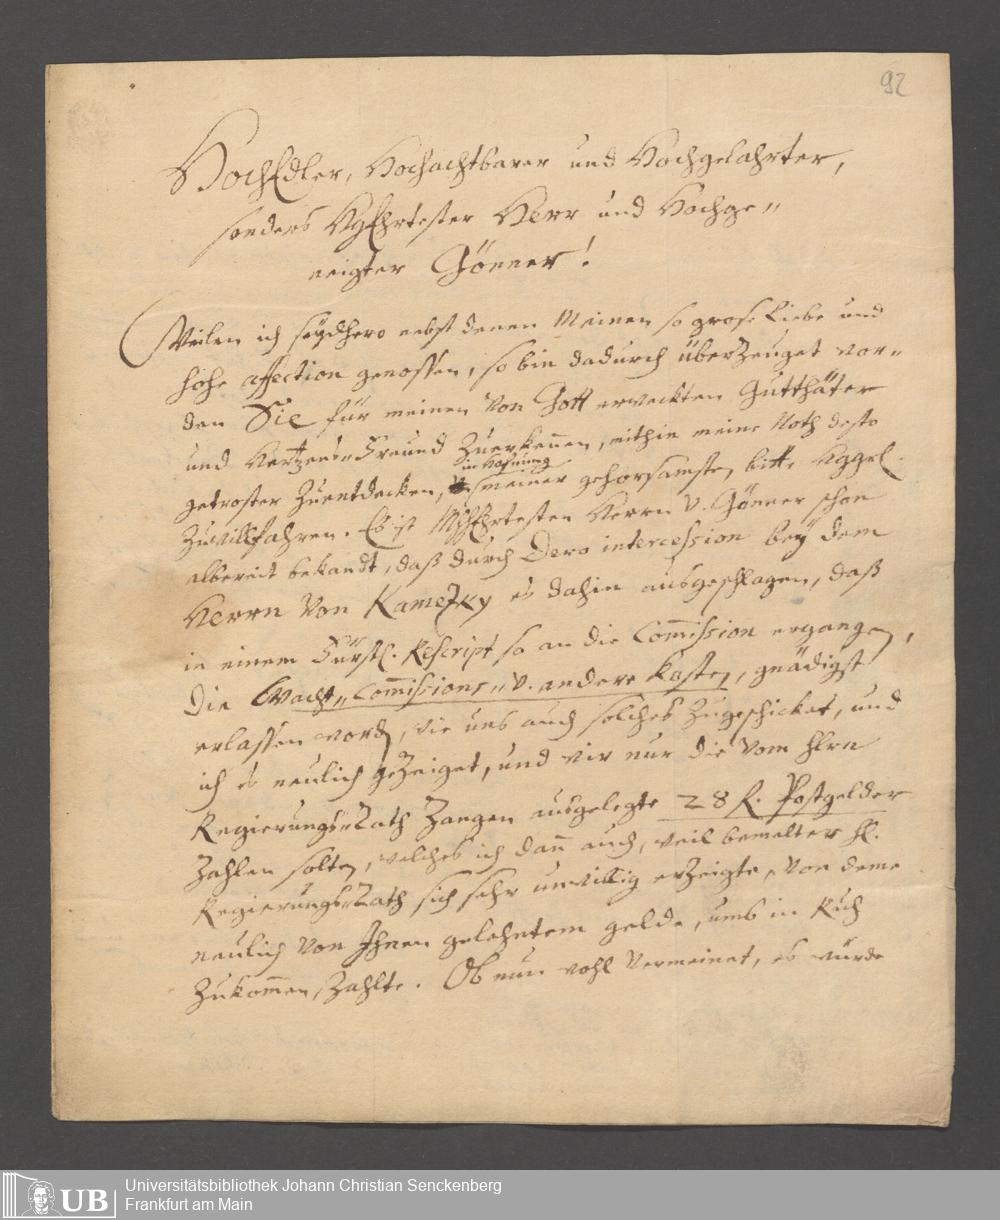 92
HochEdler, Hochachtbarer und Hochgelahrter,
sonders HgEhrtester Herr und Hochge„
neigter Gönner!
Weilen ich seÿdhero nebst denen Meinen so grose Liebe und
hohe affection genossen, so bin dadurch überzeuget wor„
den Sie für meinen von Gott erweckten Gutthäter
und Hertzens„Freund Zuerkennen, mithin meine Noth desto
in Hofnung
getroster Zuentdecken, meiner gehorsamsten bitte Hggel.
Zuwillfahren. Es ist MhhEhrtesten Herrn u. Gönner schon
albereit bekandt, daß durch Dero intercession beÿ dem
Herrn von Kametzky es dahin ausgeschlagen, daß
in einem Fürstl. Rescript so an die Commission ergangen,
die Wacht„Commissions„u. andere Kosten, gnädigst
erlassen worden, wie uns auch solches Zugeschicket, und
ich es neulich gezeiget, und wir nur die vom Hlrn
Regierungs„Rath Zangen ausgelegte 28 f. Postgelder
Zahlen solten, welches ich dann auch, weil bemelter Hl.
Regierungs„Rath sich sehr unwillig erzeigte, von deme
neulich von Ihnen gelehntem gelde, umb in Ruh
Zukommen, Zahlte. Ob nun wohl vermeinet, es würde
UB
Universitätsbibliothek Johann Christian Senckenberg
Frankfurt am Main